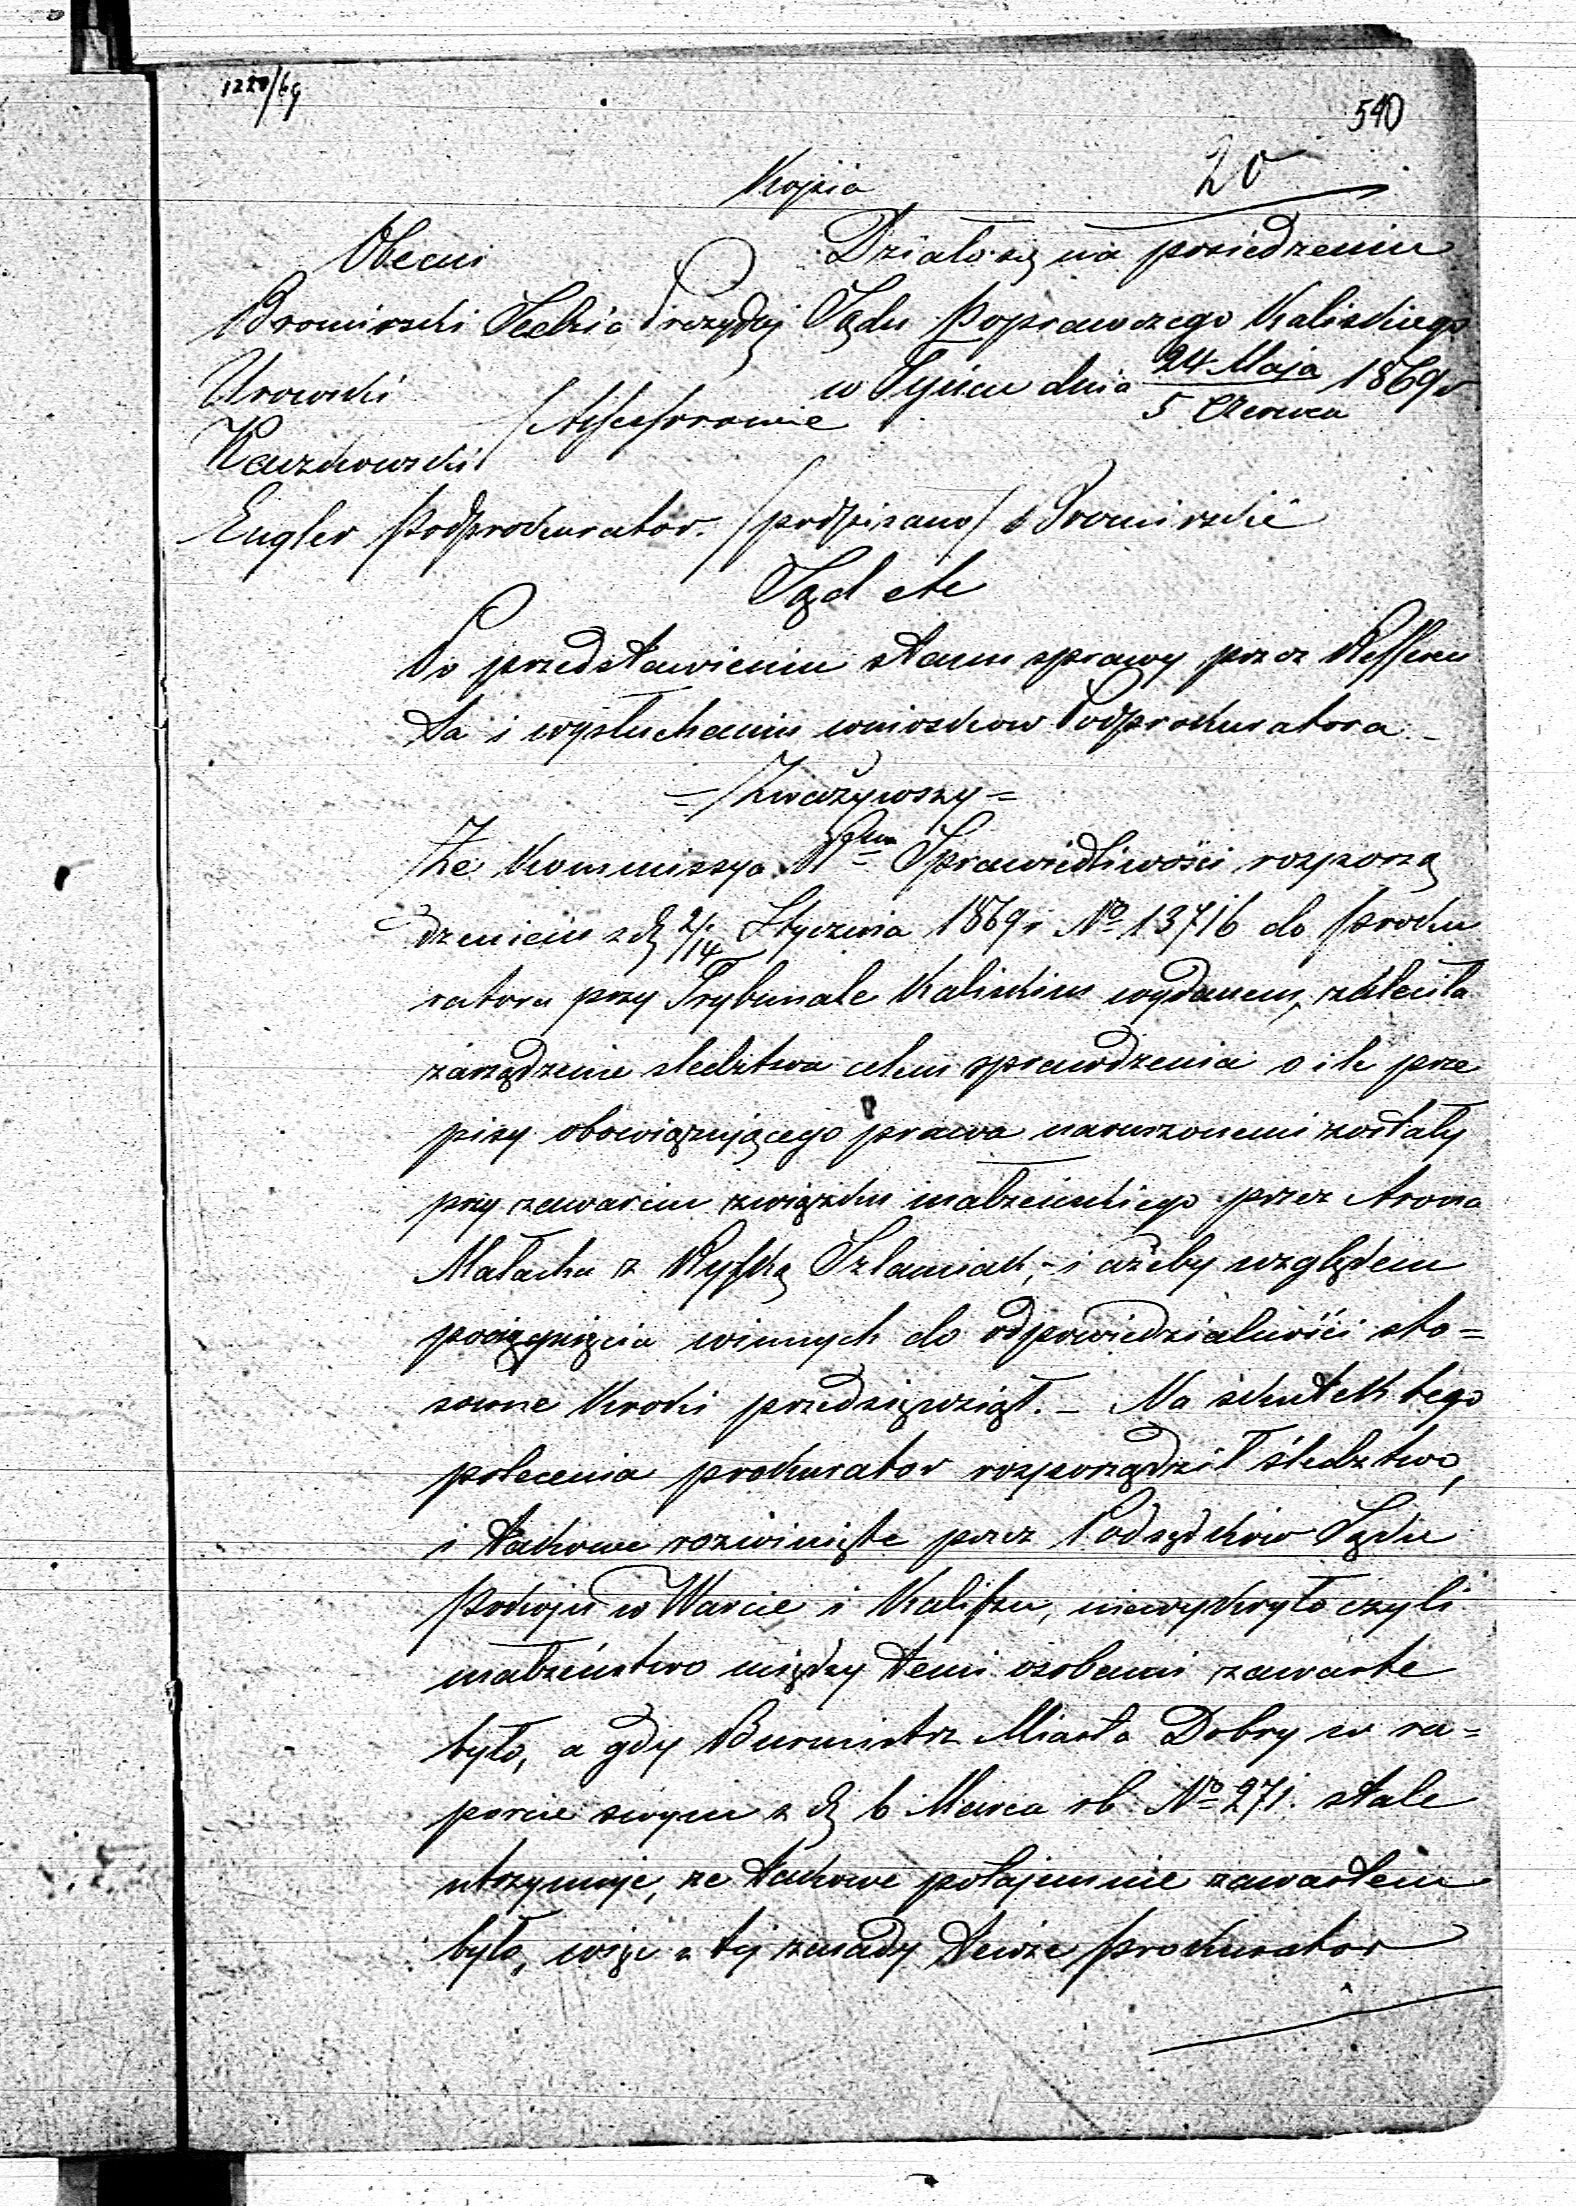 1220/69
540
20
Kopia
Obecni
Działo się na posiedzeniu
Bromirski Sędzia Prezydój
Sądu Poprawczego Kaliskiego
Urowski
w Tyńcu dnia 24 Maja / 5 Czerwca 1869 r
Assessorowie
Kauzkowski
Engler Podprokurator. /podpisano/ Bromirski
Sąd etc
Po przedstawieniu stanu sprawy przez Refferen
ta i wysłuchaniu wniosków Podprokuratora –
= Zważywszy =
Że Kommissya Sprawiedliwości rozporzą
dzeniem z d. 2/14 Stycznia 1869 r No 13716 do Proku
ratora przy Trybunale Kaliskim wydanem, zaleciła
zarządzenie sledztwa celem sprawdzenia o ile prze
pisy obowiązującego prawa naruszonemi zostały
przy zawarciu związku małżeńskiego przez Arona
Małacha z Ryfką Szlamiak, – i ażeby względem
pociągnięcia winnych do odpowiedzialności sto=
sowne kroki przedsięwziął. – Na skutek tego
polecenia prokurator rozporządził śledztwo,
i takowe rozwinięte przez Podsędków Sądu
Pokoju w Warcie i Kaliszu, niewykryło czyli
małżeństwo między temi osobami zawarte
było, a gdy Burmistrz Miasta Dobry w ra=
porcie swym z d. 6 Marca rb No 271. stale
utrzymuje, że takowe potajemnie zawartem
było, więc z tej zasady tenże Prokurator